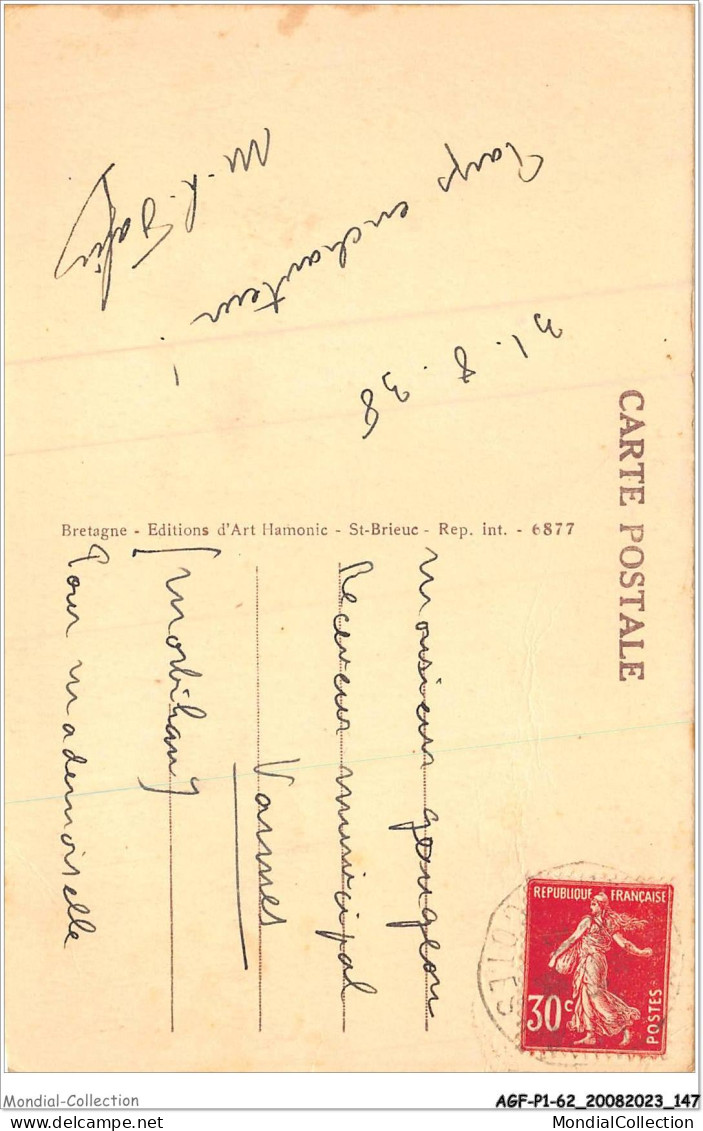 CARTE POSTALE
31.8.38
Pays enchanteur !
Bretagne - Editions d'Art Hamonic - St-Brieuc - Rep. int. - 6877
Monsieur Gougeon
Receveur municipal
Vannes
(Morbihan)
Pour Mademoiselle
REPUBLIQUE FRANÇAISE
30c
POSTES
Mondial-Collection
AGF-P1-62_20082023_147
MondialCollection